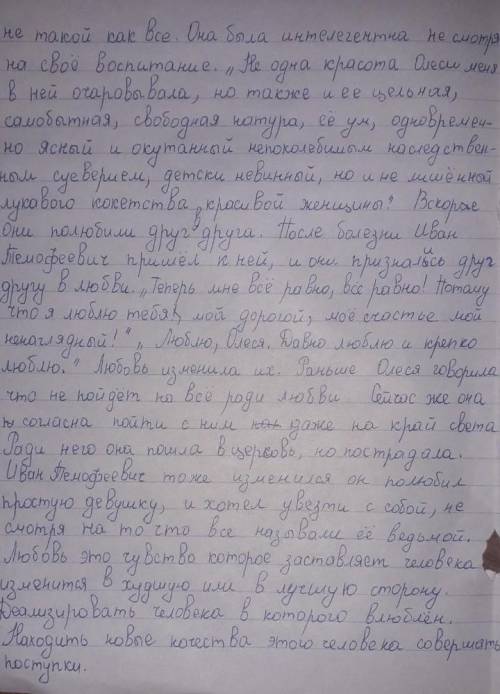 не такой как все. Она была интелегентна не смотря
на своё воспитание. „Не одна красота Олеси меня
в ней очаровывала, но также и ее цельная,
самобытная, свободная натура, её ум, одновремен-
но ясный и окутанный непоколебимым наследствен-
ным суеверием, детски невинный, но и не лишённый
лукавого кокетства красивой женщины." Вскорже
они полюбили друг в друга. После болезни Иван
Темофеевич пришёл к ней, и они признались друг
другу в любви. „Теперь мне всё равно, всё равно! Потому
что я люблю тебя!, мой дорогой, моё счастье мой
ненаглядный!" „Люблю, Олеся. Давно люблю и крепко
люблю." Любовь изменила их. Раньше Олеся говорила
что не пойдёт на всё роди любви Сейчас же она
согласна пойти с ним даже на край света
Ради него она пошла в церковь, но пострадала.
Иван Темофеевич тоже изменился он полюбил
простую девушку, и хотел увезти с собой, не
смотря на то что все называли её ведьмой.
Любовь это чувство которое заставляет человека
изменится в худшую или в лучшую сторону.
Деализировать человека в которого влюблён.
Находить новые качества этого человека совершать
поступки.